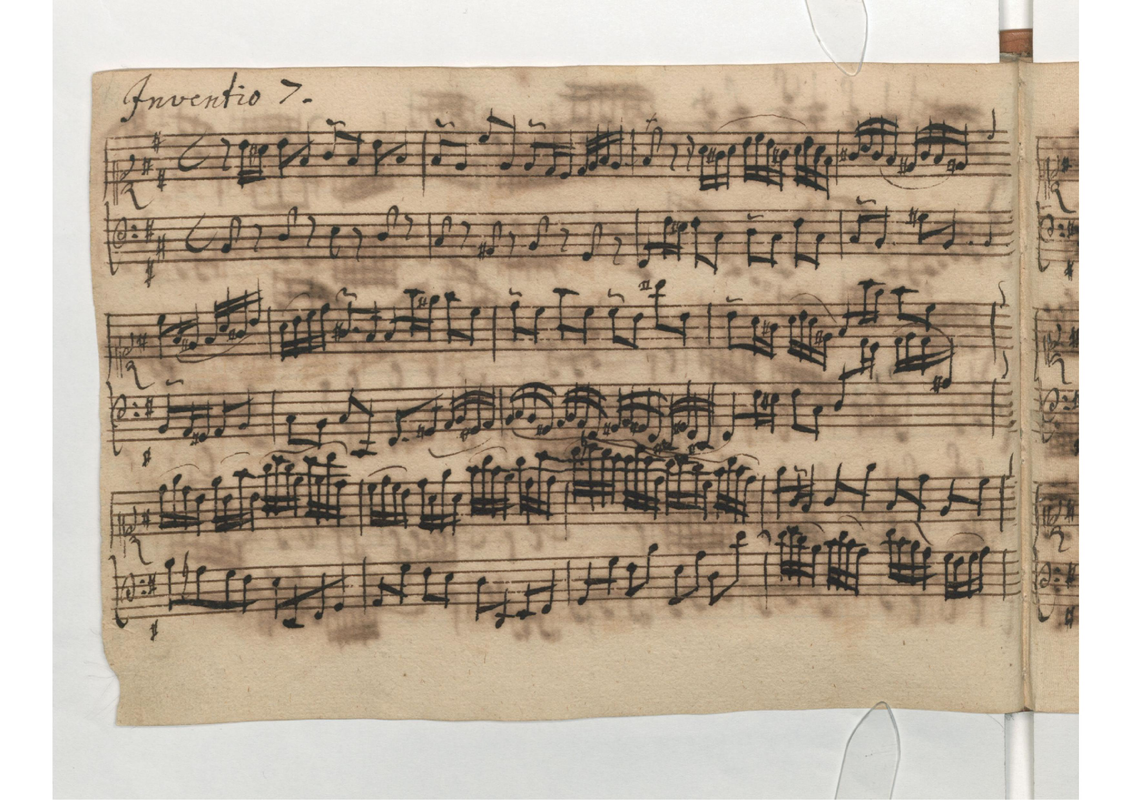 Inventio 7.